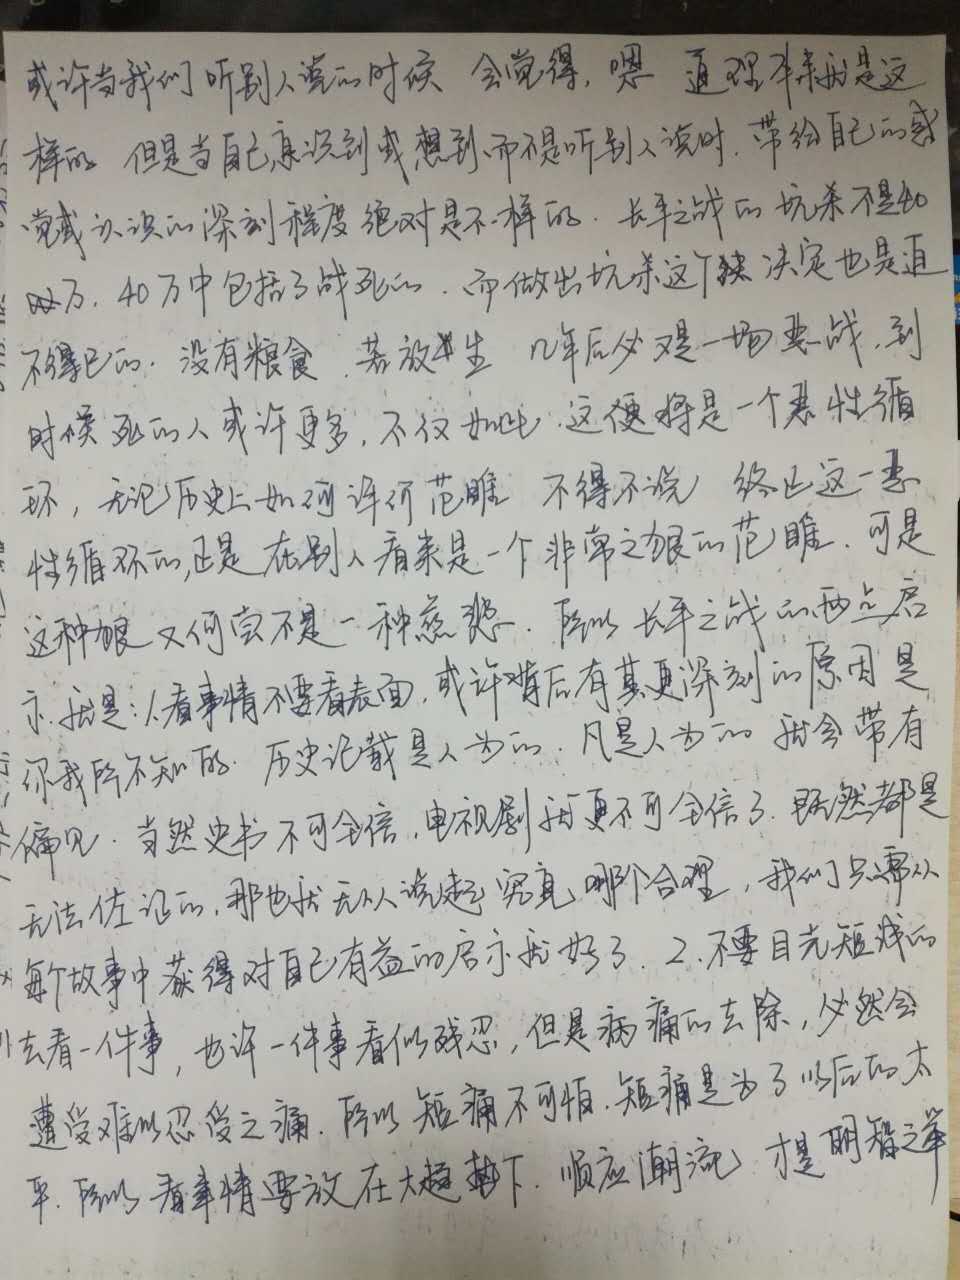 或许当我们听别人说的时候 会觉得，嗯 道理本来就是这
样的 但是当自己意识到或想到而不是听别人说时，带给自己的感
觉或认识的深刻程度绝对是不一样的．长平之战的坑杀不是40
万．40万中包括了战死的．而做出坑杀这个决定也是迫
不得已的．没有粮食．若放生 几年后必又是一场恶战，到
时候死的人或许更多，不仅如此．这便将是一个恶性循
环，无论历史上如何评价范雎 不得不说 终止这一恶
性循环的，正是在别人看来是一个非常之狠的范雎．可是
这种狠又何尝不是一种慈悲．所以长平之战的两点启
示就是：1.看事情不要看表面，或许背后有其更深刻的原因是
你我所不知的．历史记载是人为的．凡是人为的就会带有
偏见．当然史书不可全信，电视剧就更不可全信了．既然都是
无法佐证的，那也就无从说起究竟哪个合理，我们只需从
每个故事中获得对自己有益的启示就好了．2.不要目光短浅的
去看一件事，也许一件事看似残忍，但是病痛的去除，必然会
遭受难以忍受之痛．所以短痛不可怕．短痛是为了以后的太
平．所以看事情要放在大趋势下．顺应潮流 才是明智之举